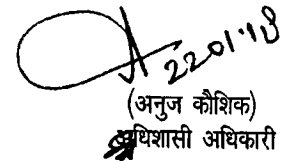 22.01.18
(अनुज कौशिक)
अधिशासी अधिकारी